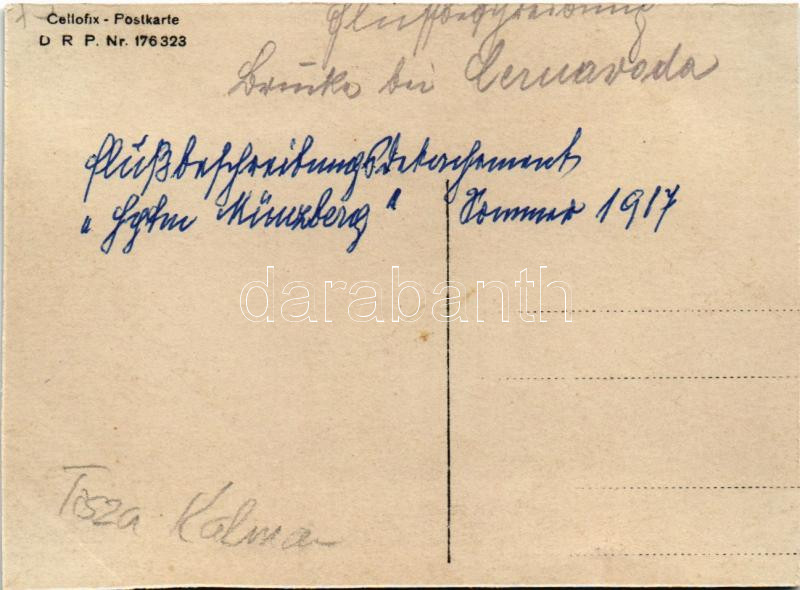 Cellofix - Postkarte
D R P. Nr. 176323
Flussbeschreibung
Brücke bei Cernavoda
Flußbeschreibungsdetachement
„Hptm Münzberg" Sommer 1917
darabanth
Tisza Kálmán